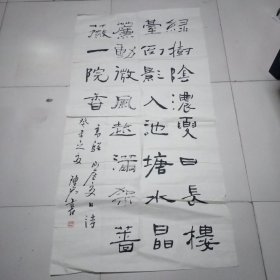 綠樹陰濃夏日長樓
臺倒影入池塘水晶
簾動微風起滿架薔
薇一院香
高駢山居夏日詩
之夏 書